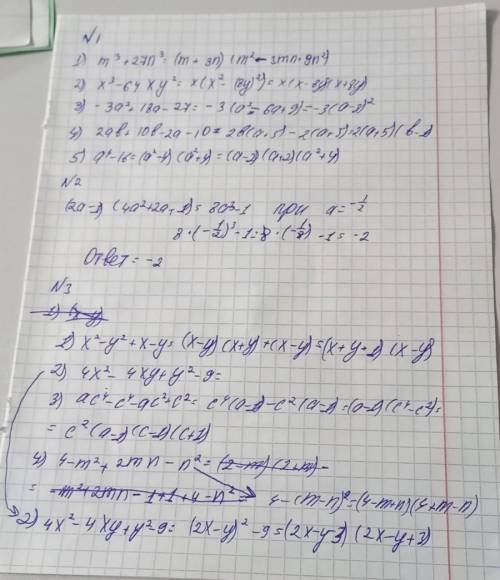 №1
1) m³ + 27n³ = (m + 3n) (m² - 3mn + 9n²)
2) x³ - 64xy² = x(x² - (8y)²) = x(x - 8y)(x + 8y)
3) -3a² + 18a - 27 = -3(a² - 6a + 9) = -3(a - 3)²
4) 2ab + 10b - 2a - 10 = 2b(a + 5) - 2(a + 5) = 2(a + 5)(b - 1)
5) a⁴ - 16 = (a² - 4)(a² + 4) = (a - 2)(a + 2)(a² + 4)
№2
(2a - 1)(4a² + 2a + 1) = 8a³ - 1 при a = -1/2
8 · (-1/2)³ - 1 = 8 · (-1/8) - 1 = -2
Ответ = -2
№3
1) x² - y² + x - y = (x - y)(x + y) + (x - y) = (x + y + 1)(x - y)
2) 4x² - 4xy + y² - 9 =
3) ac⁴ - c⁴ - ac² + c² = c⁴(a - 1) - c²(a - 1) = (a - 1)(c⁴ - c²) =
= c²(a - 1)(c - 1)(c + 1)
4) 4 - m² + 2mn - n² = (2 - m)(2 + m) -
= - m² + 2mn - 1 + 1 + 4 - n² = 4 - (m - n)² = (4 - m + n)(4 + m - n)
2) 4x² - 4xy + y² - 9 = (2x - y)² - 9 = (2x - y - 3)(2x - y + 3)